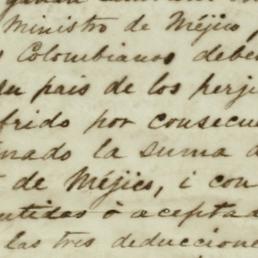 Ministro de Méjico
Colombianos debe
su pais de los perji
frido por consecue
nado la suma d
de Méjico, i con
entidas ó acepta
las tres deduccione